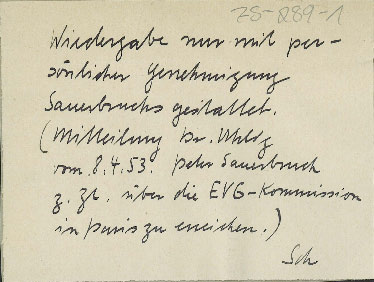 ZS-289-1
Wiedergabe nur mit per-
sönlicher Genehmigung
Sauerbruchs gestattet.
(Mitteilung Dr.
vom 8.4.53. Peter Sauerbruch
z. Zt. über die EVG-Kommission
in Paris zu erreichen.)
Sch